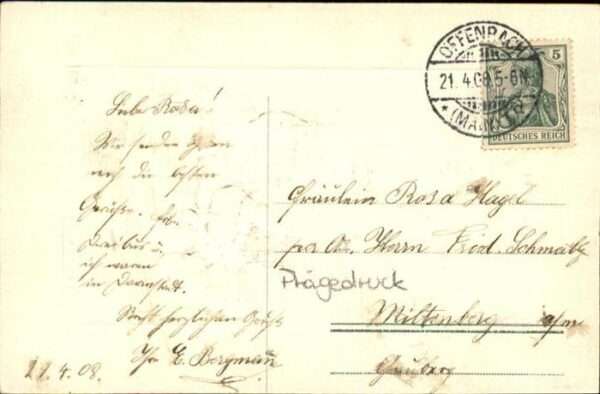 OFFENBACH
21. 4. 08. 5-6 N.
* (MAIN)
5
DEUTSCHES REICH
Liebe Rosa!
Wir senden
noch die besten
Grüsse.
ich waren
in Darmstadt.
Recht herzlichen Gruss
Ihr E. Bergmann
21.4.08.
Fräulein Rosa Hagel
per Adr. Herrn Fried. Schmaltz
Prägedruck
Miltenberg a/m